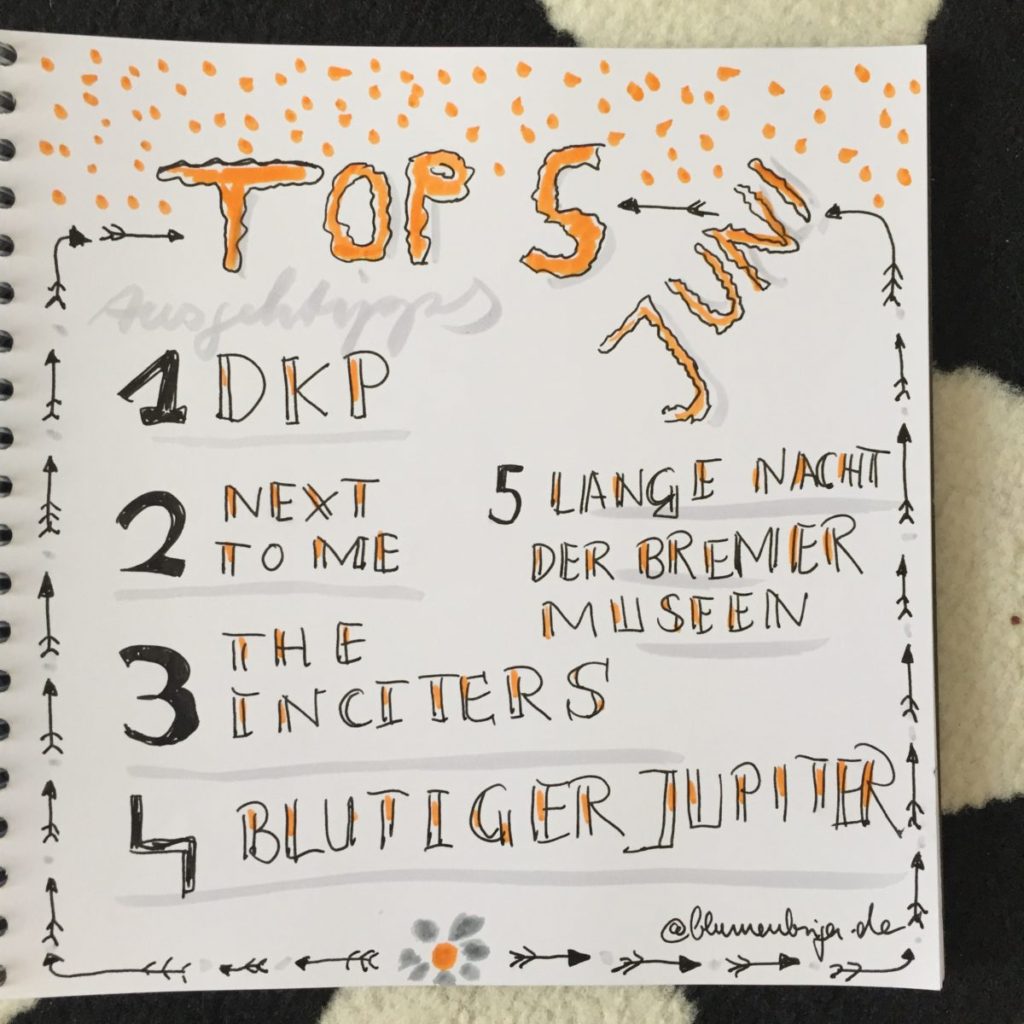 TOP 5
JUNI
Ausgehtipps
1 DKP
2 NEXT
TO ME
3 THE
INCITERS
4 BLUTIGER JUPITER
5 LANGE NACHT
DER BREMER
MUSEEN